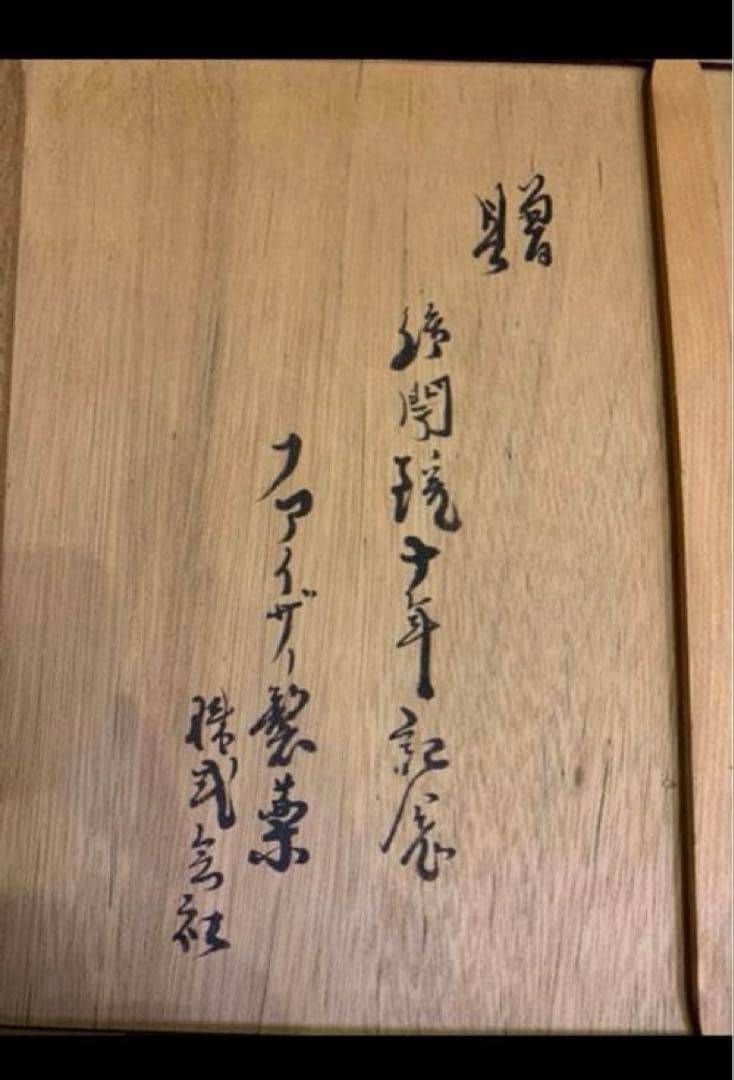 贈
御開院十年記念
ファイザー製薬
株式会社